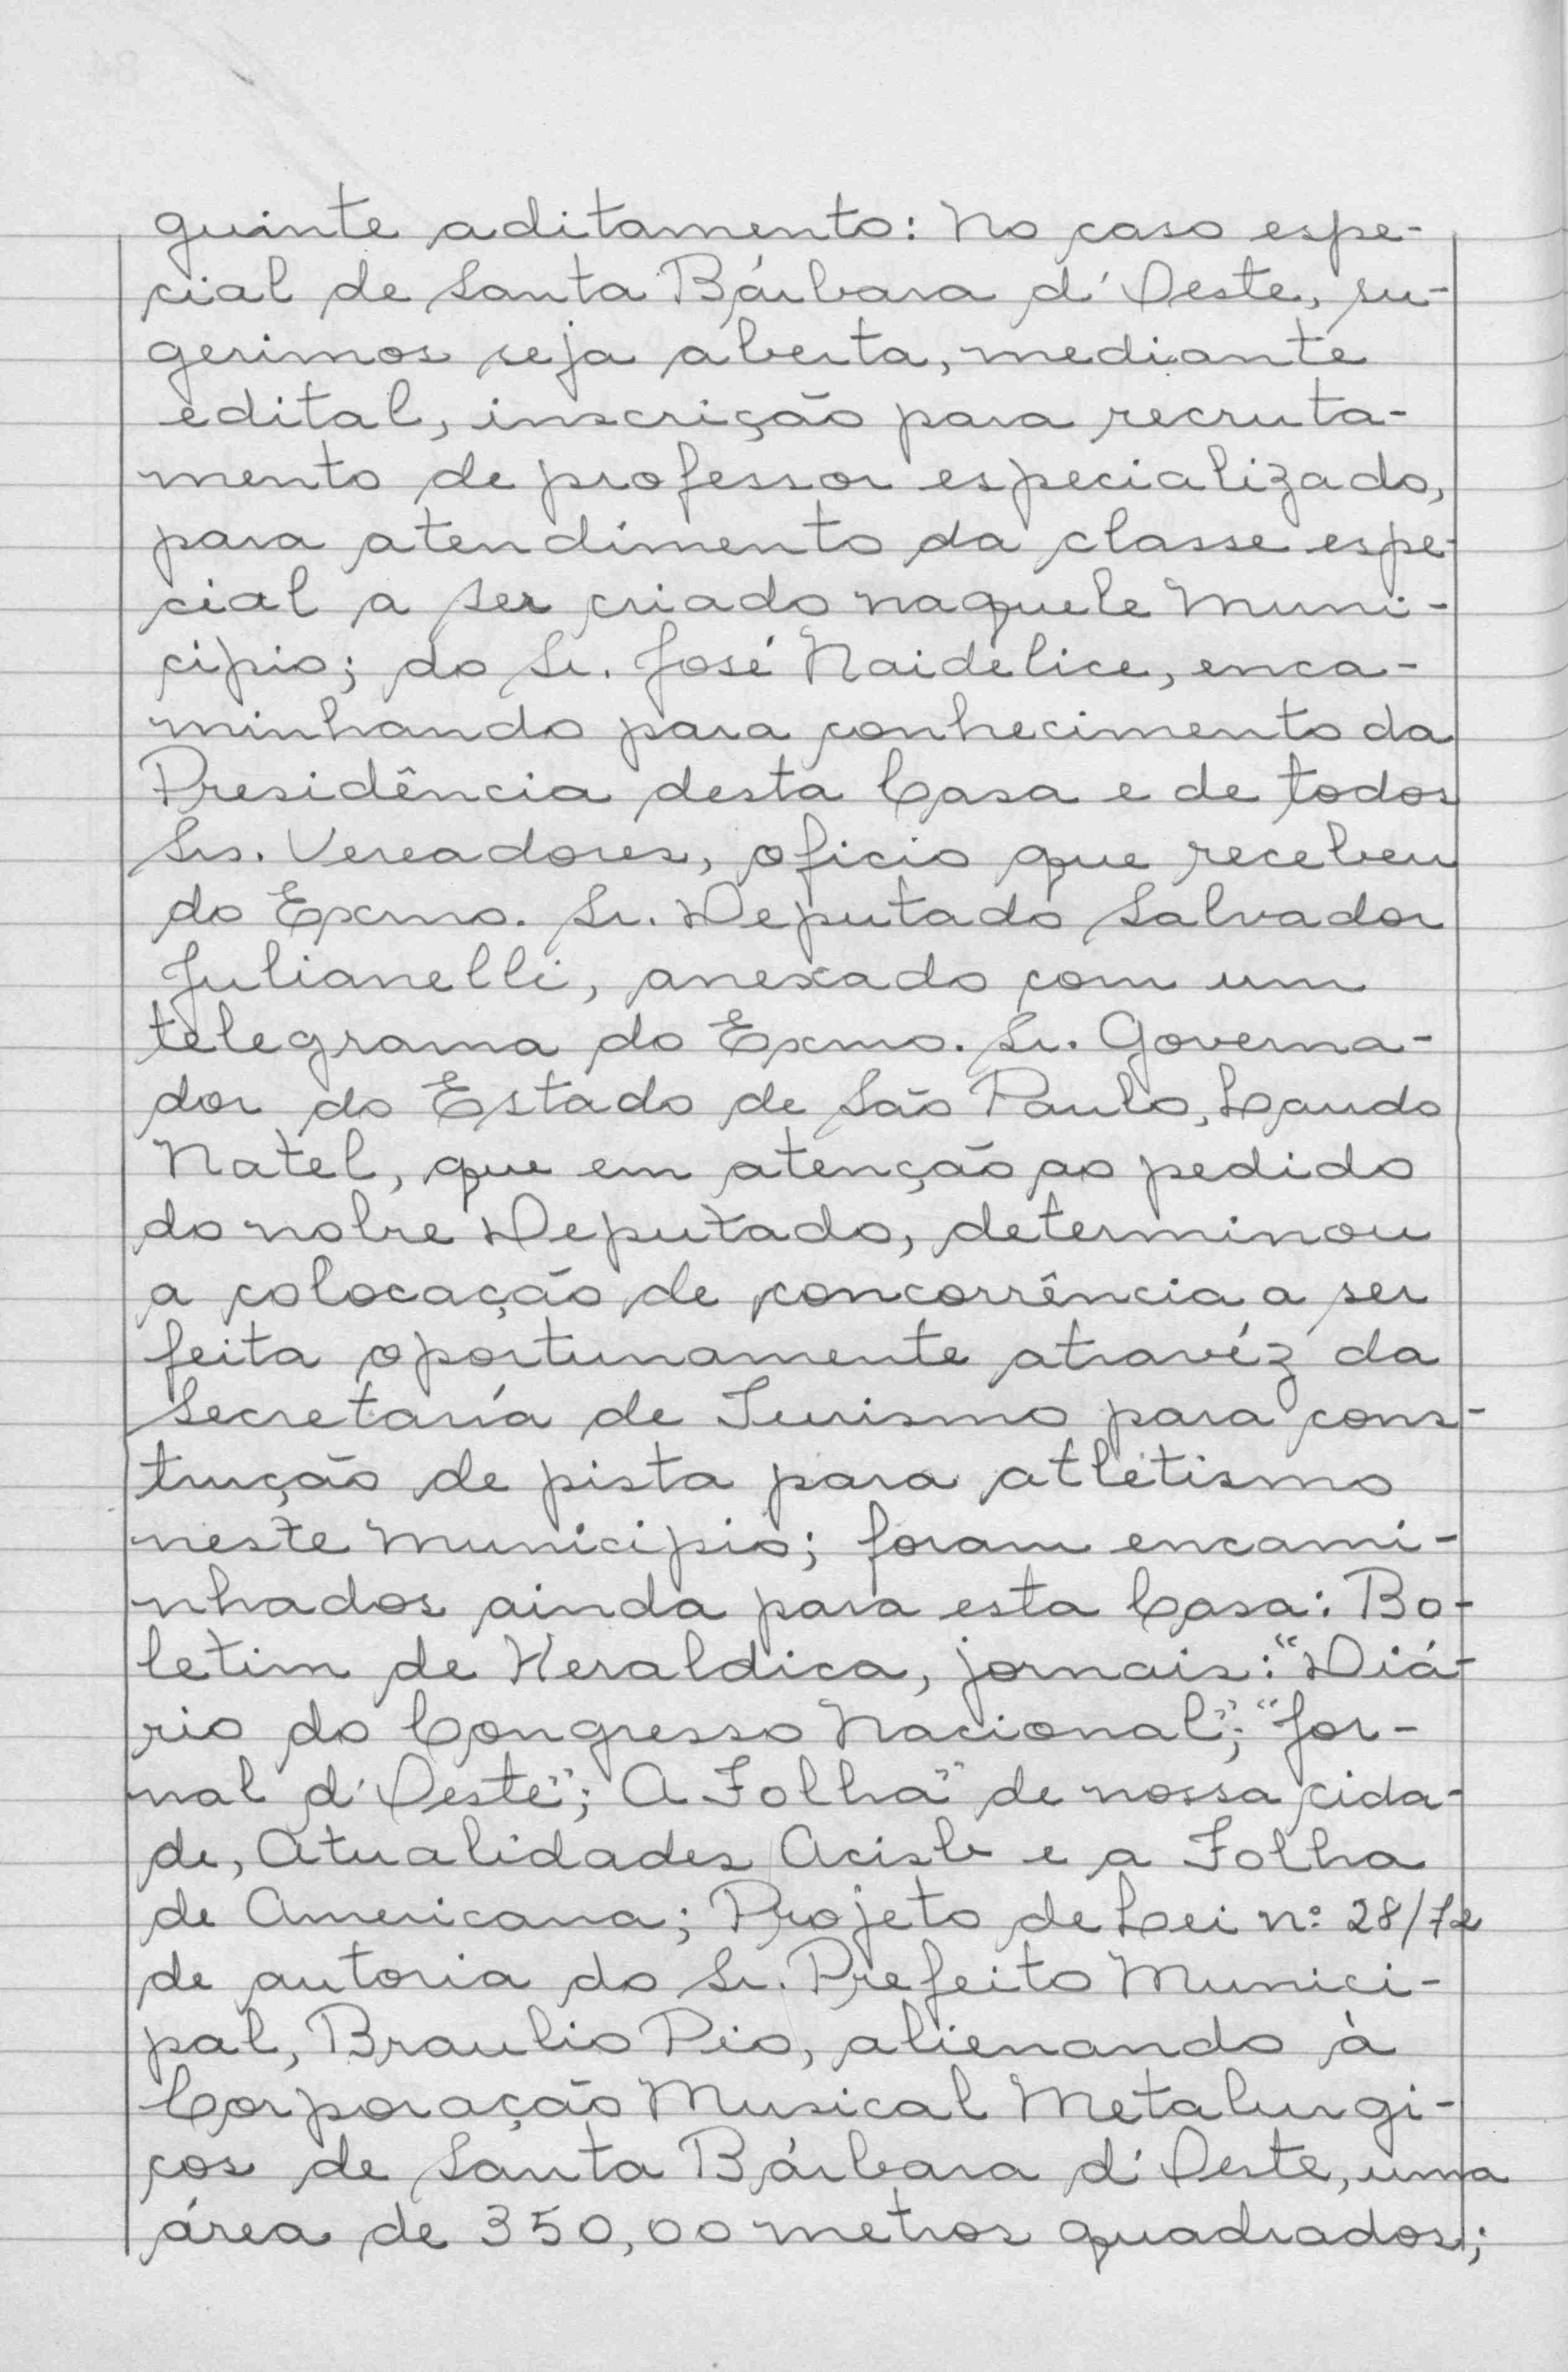 guinte aditamento: No caso espe-
cial de Santa Bárbara d'Oeste, su-
gerimos seja aberta, mediante
edital, inscrição para recruta-
mento de professor especializado,
para atendimento da classe espe-
cial a ser criado naquele Muni-
cipio; do Sr. José Naidelice, enca-
minhando para conhecimento da
Presidência desta Casa e de todos
Srs. Vereadores, oficio que recebeu
do Exmo. Sr. Deputado Salvador
Julianelli, anexado com um
telegrama do Exmo. Sr. Governa-
dor do Estado de São Paulo, Laudo
Natel, que em atenção ao pedido
do nobre Deputado, determinou
a colocação de concorrência a ser
feita oportunamente atravéz da
Secretaría de Turismo para cons-
trução de pista para atlétismo
neste Municipio; foram encami-
nhados ainda para esta Casa: Bo-
letim de Heraldica, jornais: "Diá-
rio do Congresso Nacional"; "Jor-
nal d'Oeste"; A Folha" de nossa cida-
de, Atualidades Acisb e a Folha
de Americana; Projeto de Lei nº 28/72
de autoria do Sr. Prefeito Munici-
pal, Braulio Pio, alienando à
Corporação Musical Metalurgi-
cos de Santa Bárbara d'Oeste, uma
área de 350,00 metros quadrados;